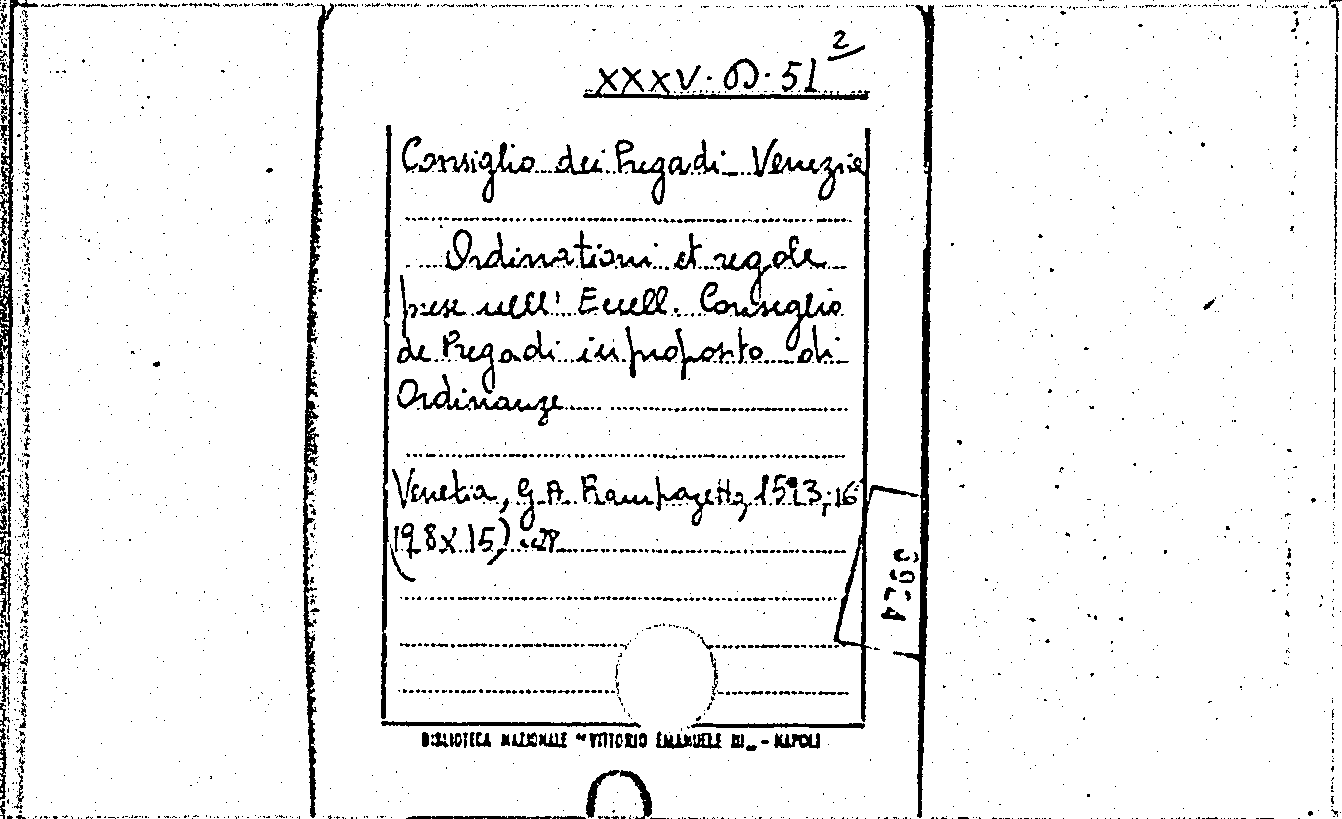 XXXV. D. 51²
Consiglio dei Pregadi - Venezia
Ordinationi et regole
prese nell' Eccell. Consiglio
de Pregadi in proposito di
Ordinanze
Venetia, G A Rampazetto, 1593, 16
(19.8 x 15) c. 28
BIBLIOTECA NAZIONALE "VITTORIO EMANUELE III" - NAPOLI